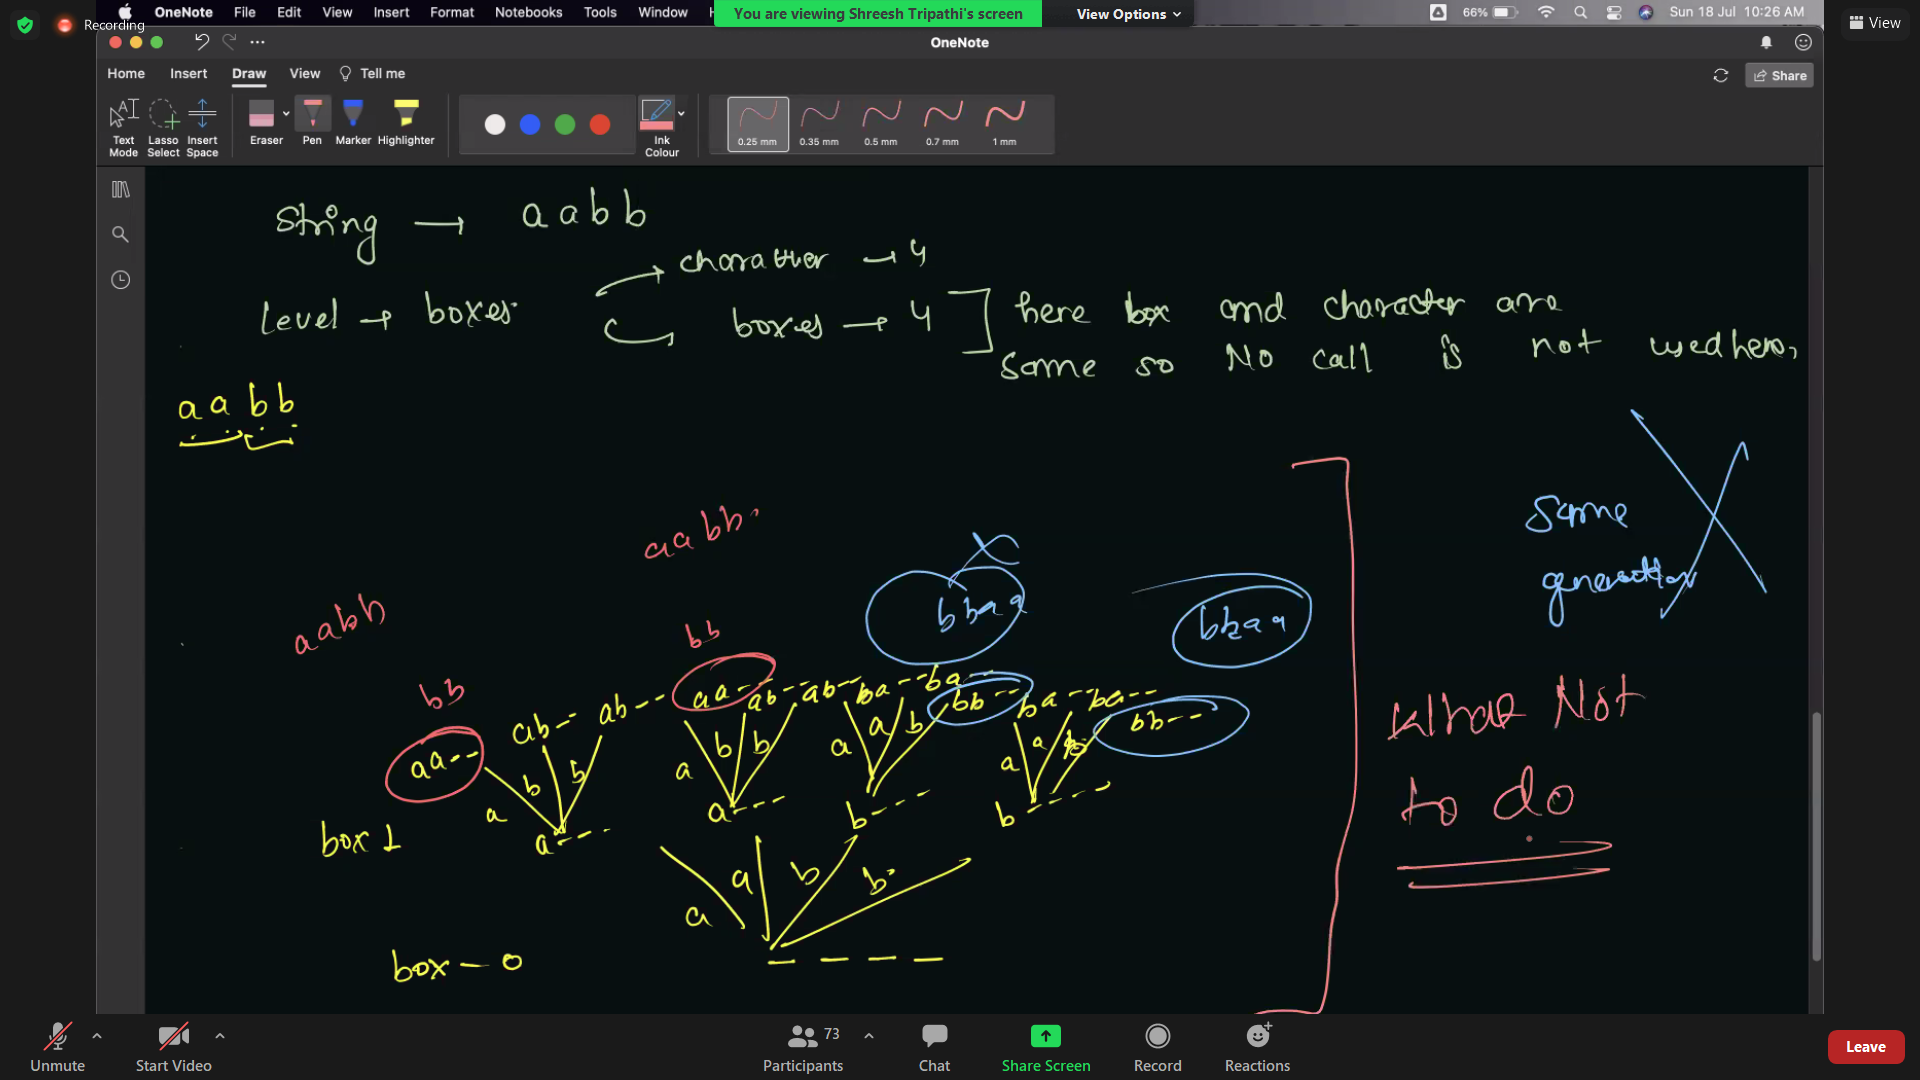 Recording
OneNote File Edit View Insert Format Notebooks Tools Window
You are viewing Shreesh Tripathi's screen
View Options
66% Sun 18 Jul 10:26 AM
View
OneNote
Home Insert Draw View Tell me
Share
Text Mode
Lasso Select
Insert Space
Eraser
Pen
Marker
Highlighter
Ink Colour
0.25 mm 0.35 mm 0.5 mm 0.7 mm 1 mm
String → aabb
character → 4
Level → boxes
boxes → 4
here box and character are
same so No call is not used here,
aabb
aabb
Same
generation
bbaa
bbaa
aabb
bb
bb
aa-- ab-- ab-- ba-- ba--
bb-- ba-- ba--
bb--
ab-- ab--
aa--
a b b
a b b
a a b
a a b
a--- b---
b----
a---
box 1
What Not
to do
a a b b
box - 0
_ _ _ _
Unmute
Start Video
Participants 73
Chat
Share Screen
Record
Reactions
Leave